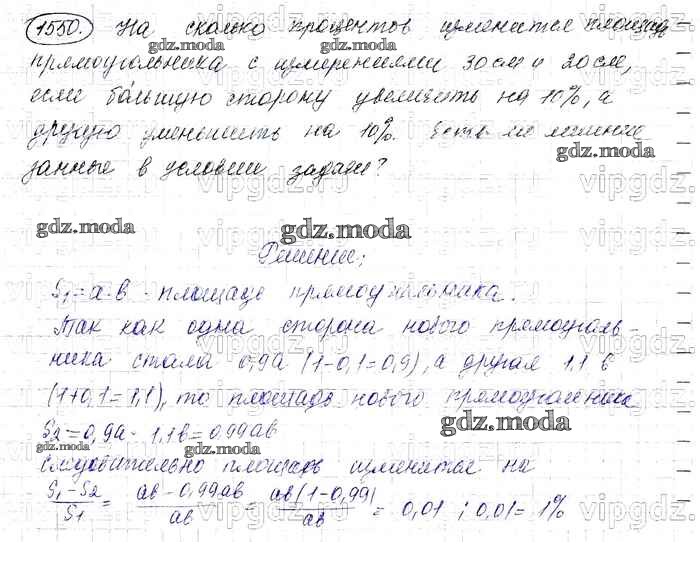 1550. На сколько процентов изменится площадь
прямоугольника с измерениями 30 см и 20 см,
если большую сторону увеличить на 10%, а
другую уменьшить на 10%. Есть ли лишние
данные в условии задачи?
Решение:
S₁ = a·b - площадь прямоугольника.
Так как одна сторона нового прямоуголь-
ника стала 0,9a (1-0,1=0,9), а другая 1,1 b
(1+0,1=1,1), то площадь нового прямоугольника
S₂=0,9a · 1,1b=0,99ab
следовательно площадь изменится на
(S₁-S₂)/S₁ = (ab-0,99ab)/ab = ab(1-0,99)/ab = 0,01 ; 0,01= 1%